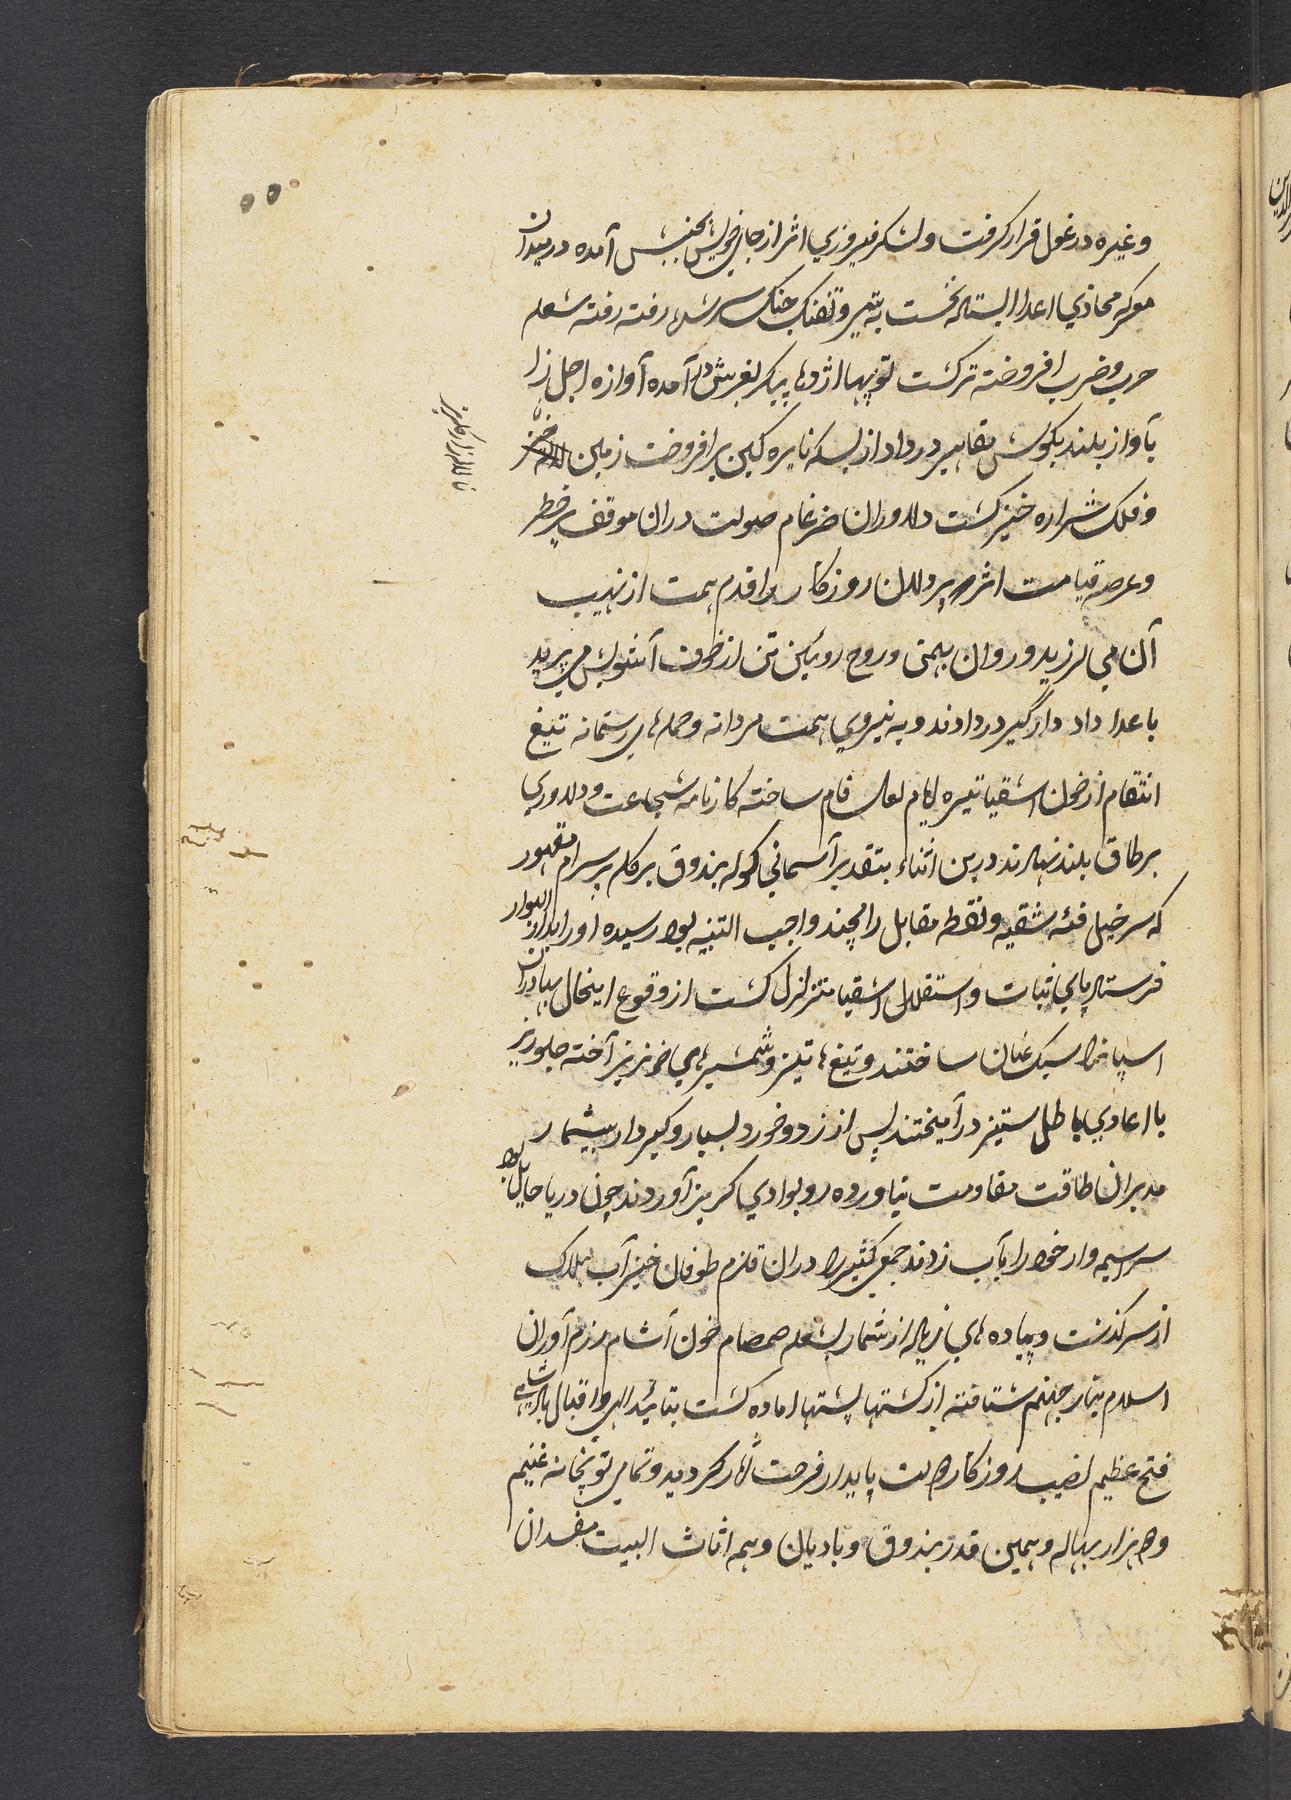 وغیره در غول قرار گرفت و لشکر فیروزی اثر از جای خویش بجنبش آمده در میدان
معرکه محاذی اعدا ایستاده نخست به تیر و تفنگ جنگ سر شد رفته رفته شعله
حرب و ضرب افروخته تر گشت توپهاء اژدها پیکر بغرش در آمده آوازه اجل را
بآواز بلند بگوش مقاهیر در داد از بسکه نایره کین برافروخت زمین
و فلک شراره خیز گشت دلاوران ضرغام صولت دران موقف پر خطر
و عرصه قیامت اثر که پر دلان روزگار را قدم همت از نهیب
آن می لرزید و روان بهمن و روح رویین تن از خوف آشوبش می پرید
با عدا داد دار گیر در دادند و به نیروی همت مردانه و حملهای رستمانه تیغ
انتقام از خون اشقیا تیره ایام لعل فام ساخته کارنامه شجاعت و دلاوری
بر طاق بلند نهادند درین اثناء بتقدیر آسمانی گوله بندوق بر کله پر سرام مقهور
که سرخیل فئه شقیه و نقطه مقابل رامچند واجب التنبیه بود رسیده او را بدار البوار
فرستاد پای ثبات و استقلال اشقیا متزلزل گشت از وقوع اینحال بهادران
اسپانرا سبک عنان ساختند و تیغهاء تیز و شمشیرهای خونریز آخته جلوریز
با اعادی باطل ستیز در آمیختند پس از زد و خورد بسیار و گیر دار بیشمار
مدبران طاقت مقاومت نیاورده رو بوادی گریز آوردند چون دریا حایل بود
سراسیمه وار خود را بآب زدند جمع کثیر را دران قلزم طوفان خیز آب هلاک
از سر گذشت و پیاده های زیاده از شمار بشعله صمصام خون آشام رزم آوران
اسلام بنار جهنم شتافته از کشتها پشتها آماده گشت بتائید الهی و اقبال بادشاهی
فتح عظیم نصیب روزگار دولت پایدار فرحت آثار گردید و تمامی توپخانه غنیم
و دو هزار بهاله و همین قدر بندوق و بادیان و همه اثاث البیت مفسدان